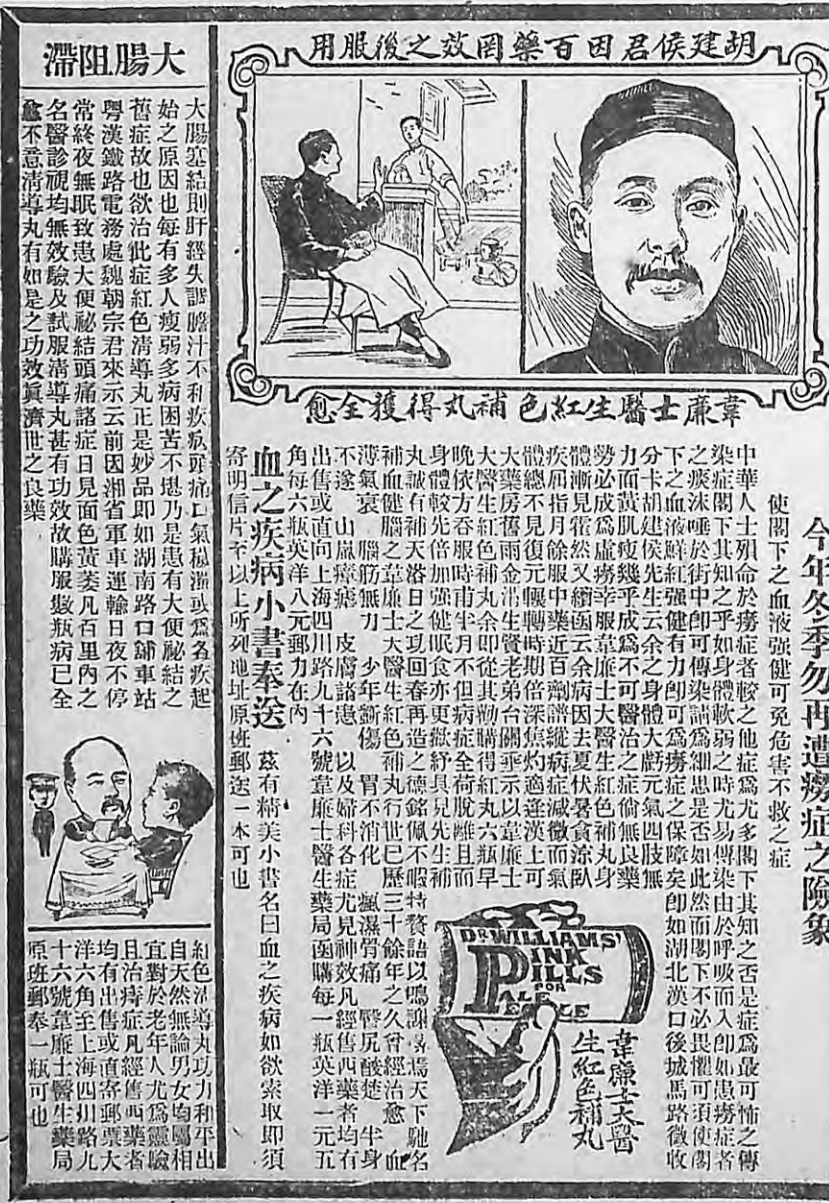 今年冬季勿再遭癆症之險象
使閣下之血液强健可免危害不救之症
胡建侯君因百藥罔效之後服用
韋廉士醫生紅色補丸得獲全愈
中華人士殞命於癆症者較之他症爲尤多閣下其知之否是症爲最可怖之傳
染症閣下其知之乎如身體軟弱之時尤易傳染由於呼吸而入卽如患癆症者
之痰沫唾於街中卽可傳染請爲細思是否如此然而閣下不必畏懼可須使閣
下之血液鮮紅强健有力卽可爲癆症之保障矣卽如湖北漢口後城馬路徵收
分卡胡建侯先生云余之身體大虧元氣四肢無
力面黃肌瘦幾乎成爲不可醫治之症倘無良藥
勞必成爲虛癆幸服韋廉士大醫生紅色補丸身
體漸見霍然又續函云余病因去夏伏暑食涼臥
疾屈指月餘服中藥近百劑譜縱病症減微而氣
體總不見復元輾轉時期倍深焦灼適逢漢上可
大藥房誓雨金渻生賢老弟台關垂示以韋廉士
大醫生紅色補丸余即從其勸購得紅丸六瓶早
晚依方吞服時甫半月不但病症全荷脫離且而
身體較先倍加强健眠食亦更歡紓具見先生補
丸誠有補天浴日之功回春再造之德銘佩不暇特贅語以鳴謝 馳名
補血健腦之韋廉士大醫生紅色補丸行世已歷三十餘年之久曾經治愈 血
薄氣衰 腦筋無力 少年斵傷 胃不消化 瘋濕骨痛 臀尻酸楚 半身
不遂 山嵐瘴瘧 皮膚諸患 以及婦科各症尤見神效凡經售西藥者均有
出售或直向上海四川路九十六號韋廉士醫生藥局函購每一瓶英洋一元五
角每六瓶英洋八元郵力在內
血之疾病小書奉送 茲有精美小書名曰血之疾病如欲索取即須
寄明信片至以上所列地址原班郵送一本可也
DR WILLIAMS'
PINK
PILLS
FOR
PALE
PEOPLE
韋廉士大醫
生紅色補丸
大腸阻滯
大腸塞結則肝經失調膽汁不利疾病頭痛口氣穢濁或爲各疾起
始之原因也每有多人瘦弱多病困苦不堪乃是患有大便祕結之
舊症故也欲治此症紅色淸導丸正是妙品即如湖南路口舖車站
粤漢鐵路電務處魏朝宗君來示云前因湘省軍車運輸日夜不停
常終夜無眠致患大便祕結頭痛諸症日見面色黃萎凡百里內之
名醫診視均無效驗及試服淸導丸甚有功效故購服數瓶病已全
愈不意淸導丸有如是之功效眞濟世之良藥
紅色淸導丸功力和平出
自天然無論男女均屬相
宜對於老年人尤爲靈驗
且治痔症凡經售西藥者
均有出售或直寄郵票大
洋六角至上海四川路九
十六號韋廉士醫生藥局
原班郵奉一瓶可也